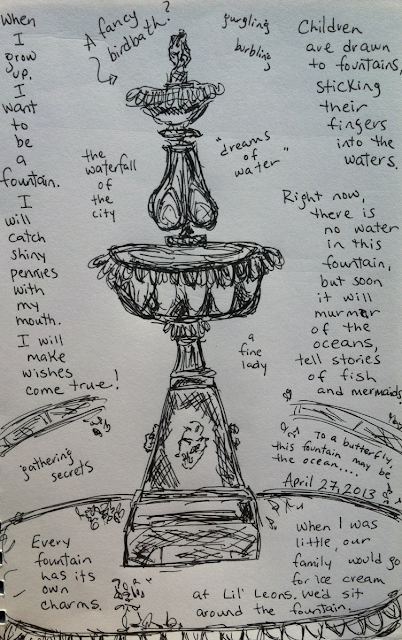 When
I
grow
up,
I
want
to
be
a
fountain.
I
will
catch
shiny
pennies
with
my
mouth.
I will
make
wishes
come true!
A fancy
birdbath?
gurgling
burbling
Children
are drawn
to fountains,
sticking
their
fingers
into the
waters.
the
waterfall
of
the
city
"dreams
of
water"
Right now,
there is
no water
in this
fountain,
but soon
it will
murmur
of the
oceans,
tell stories
of fish
and mermaids.
a
fine
lady
gathering
secrets
To a butterfly,
this fountain may be
the ocean....
April 27, 2013
Every
fountain
has its
own
charms.
When I was
little, our
family would go
for ice cream
at Lil' Leons. We'd sit
around the fountain.